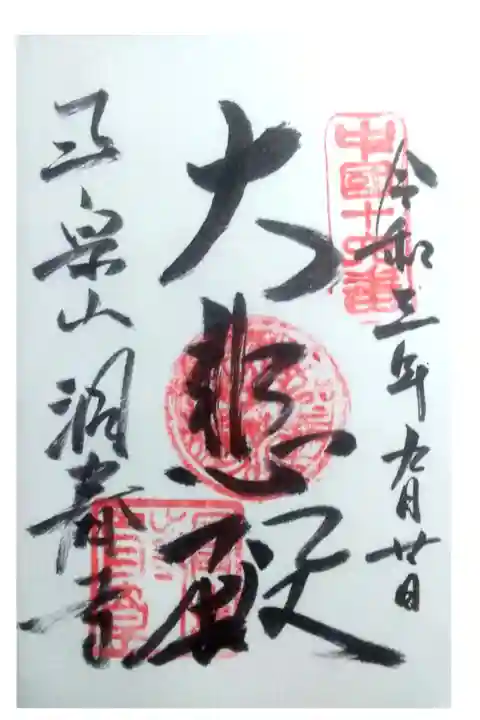 中國十六番
令和三年九月廿日
大悲殿
正宗山洞春寺